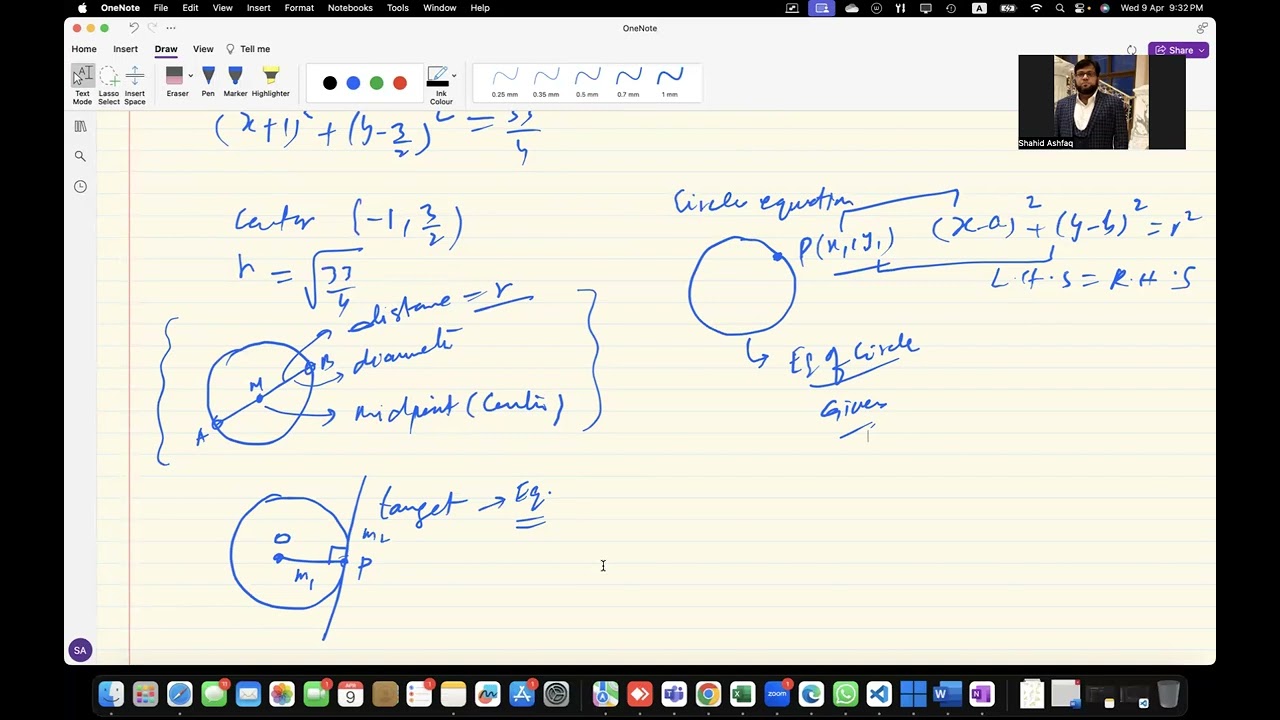 OneNote File Edit View Insert Format Notebooks Tools Window Help A Wed 9 Apr 9:32 PM
OneNote
Home Insert Draw View Tell me Share
Text Mode Lasso Select Insert Space Eraser Pen Marker Highlighter Ink Colour 0.25 mm 0.35 mm 0.5 mm 0.7 mm 1 mm
Shahid Ashfaq
(x+1)² + (y-3/2)² = 33/4
Center (-1, 3/2)
r = √33/4
distane = r
diameter
midpoint (Centre)
A M B
tanget → Eq.
O m₁ m₂ P
Circle equation
P(x₁, y₁) (x-a)² + (y-b)² = r²
L.H.S = R.H.S
Eq of Circle
Given
SA
11 1 APR 9 1 1 zoom 1